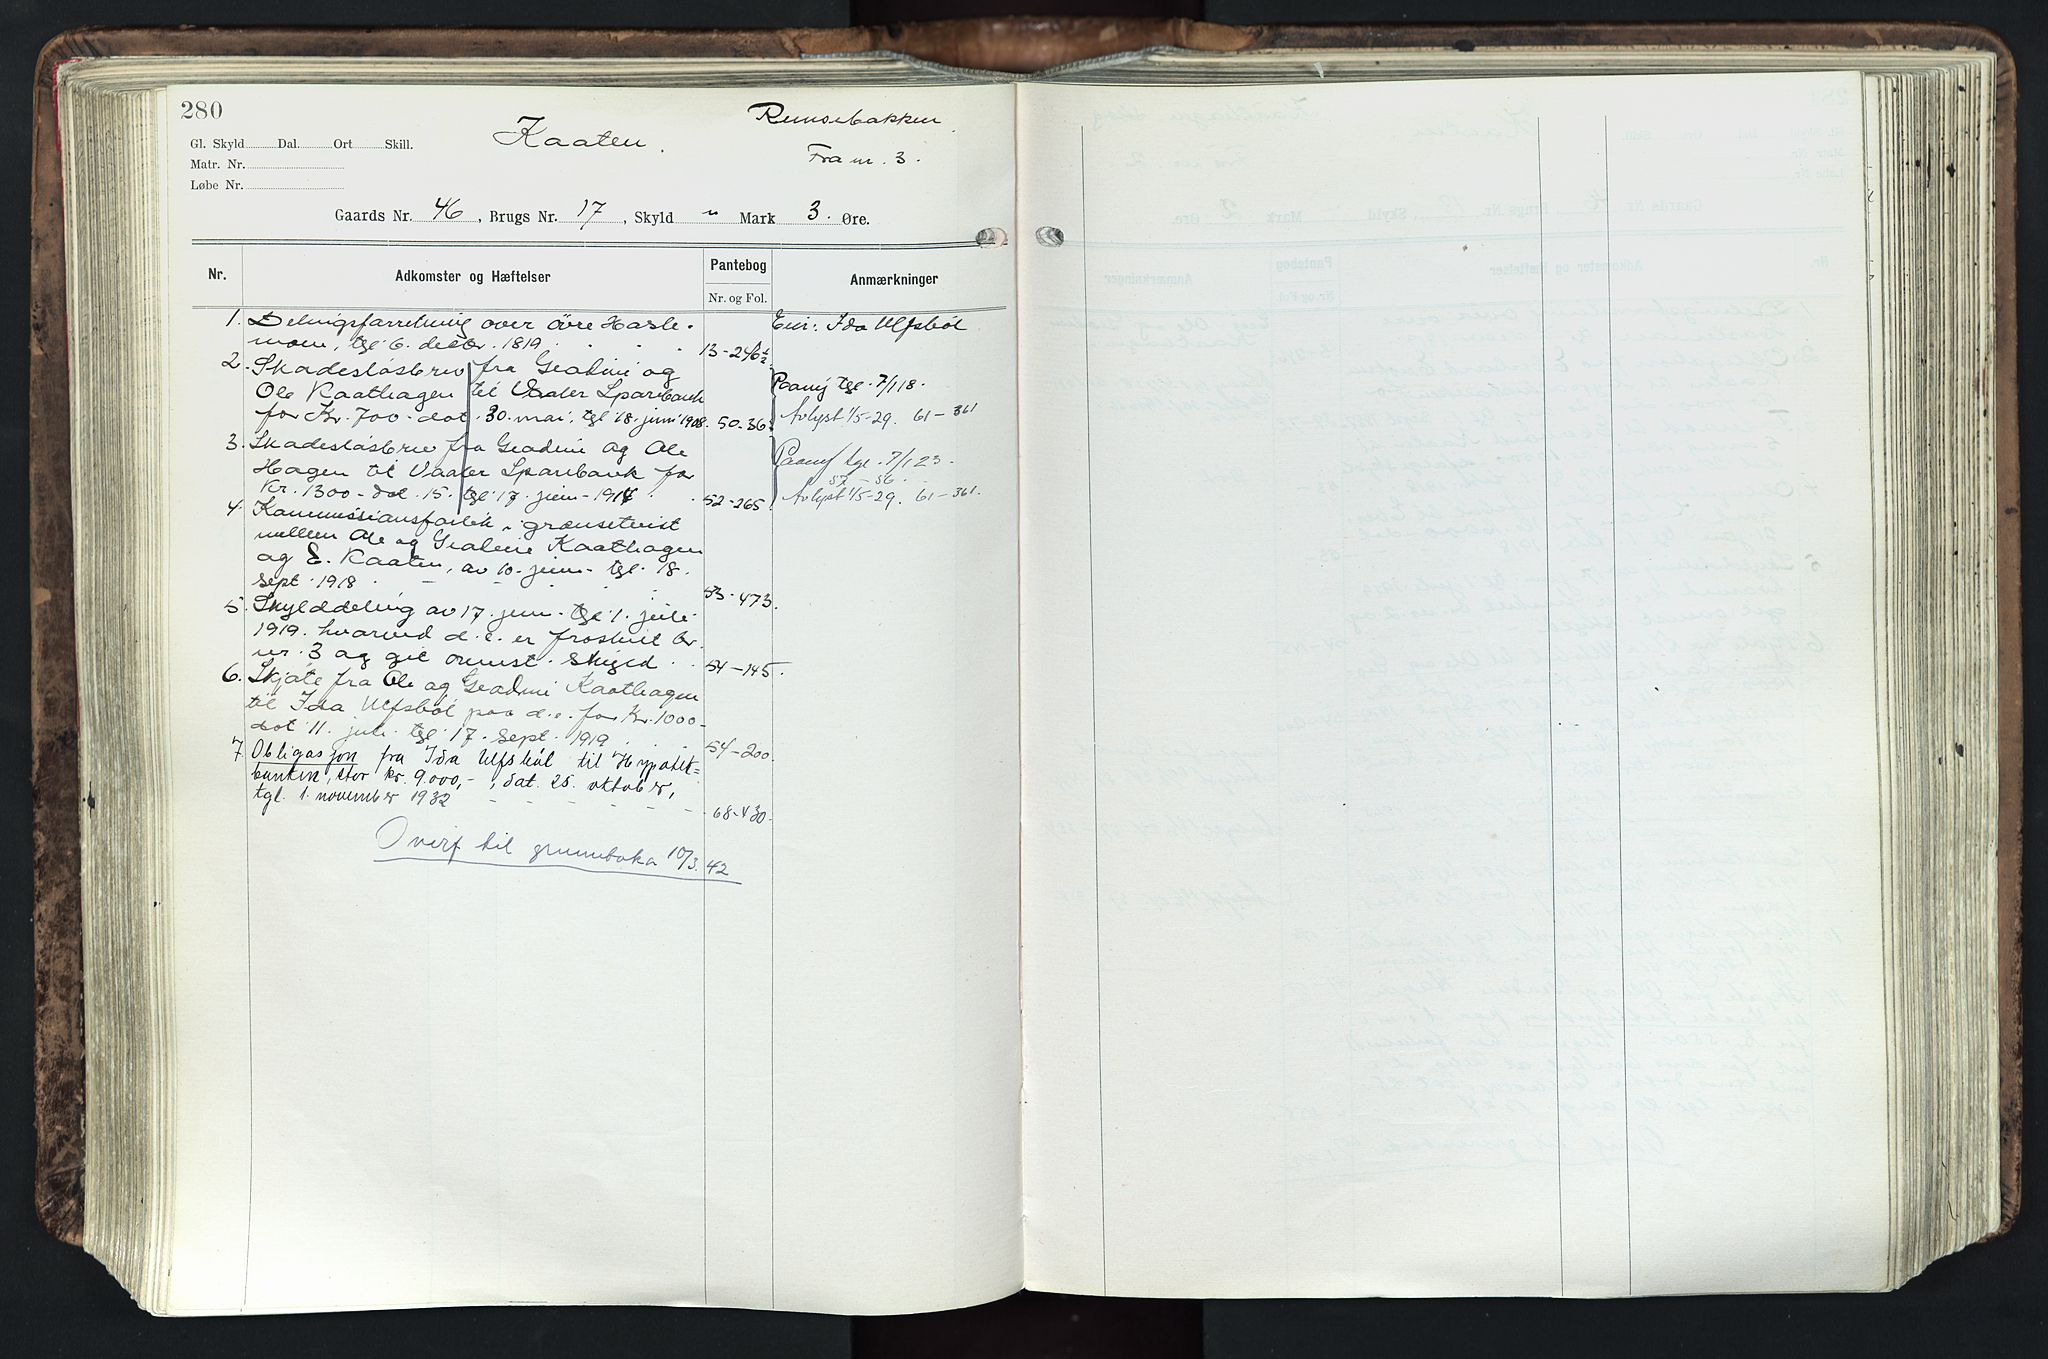 280
Kaaten.
Remsebakken
Fra nr. 3.
Gl. Skyld Dal. Ort Skill.
Matr. Nr.
Løbe Nr.
Gaards Nr. 46, Brugs Nr. 17, Skyld " Mark 3. Øre.
Nr. Adkomster og Hæftelser Pantebog Nr. og Fol. Anmærkninger
1. Delingsforretning over övre Hasle- Eier: Ida Ulfsböl
moen, tgl. 6. decbr. 1819 13-246½
2. Skadeslösbrev fra Geadine og
Ole Kaathagen til Vaaler Sparebank Paany tgl. 7/1 18.
for Kr. 700- dat. 30. mai, tgl. 18. juni 1908. 50-36 Avlyst 1/5-29. 61-361
3. Skadeslösbrev fra Geadine og Ole
Hagen til Vaaler Sparebank for Paany tgl. 7/1 23.
57-56.
Kr. 1300- dat. 15. tgl. 17. juni 1914 52-265 Avlyst 1/5-29. 61-361.
4. Kommissionsforlik i grænsetvist
mellem Ole og Geadine Kaathagen
og E. Kaaten, av 10. juni- tgl. 18.
sept. 1918 53-473.
5. Skylddeling av 17. juni- tgl. 1. juli
1919. hvorved d. e. er fraskilt br.
nr. 3 og git ovennt. skyld 54-145
6. Skjöte fra Ole og Geadine Kaathagen
til Ida Ulfsböl paa d. e. for Kr. 1000-
dat 11. juli. tgl. 17. sept. 1919 54-200
7. Obligasjon fra Ida Ulfsböl til Hypotek-
banken, stor kr. 9.000,-, dat. 25. oktober,
tgl. 1. november 1932 68-430
Overf til grunnboka 10/3.42